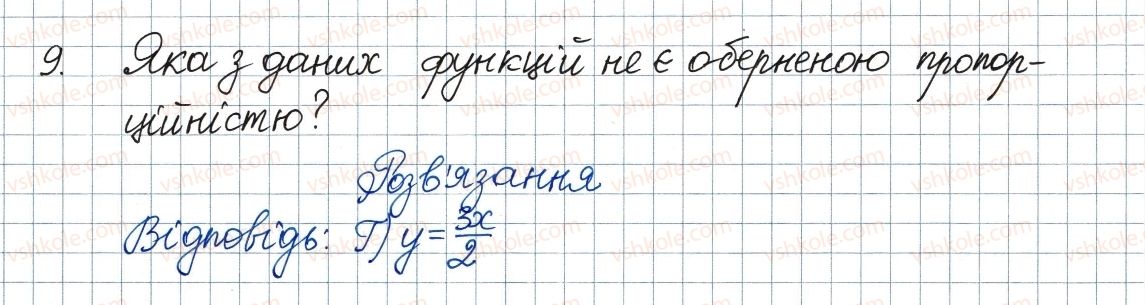 9. Яка з даних функцій не є оберненою пропор-
ційністю?
Розв'язання
Відповідь: Г) y = 3x/2